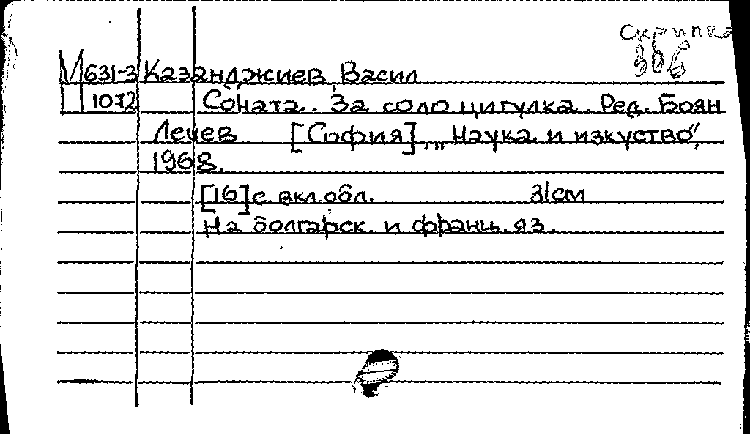 Скрипка
306
М 631-3 Казанджиев, Васил
1072 Соната.. За соло цигулка. Ред. Боян
Лечев [София], „Наука и изкуство",
1968.
[16] с. вкл. обл. 31 см
На болгарск. и франц. яз.